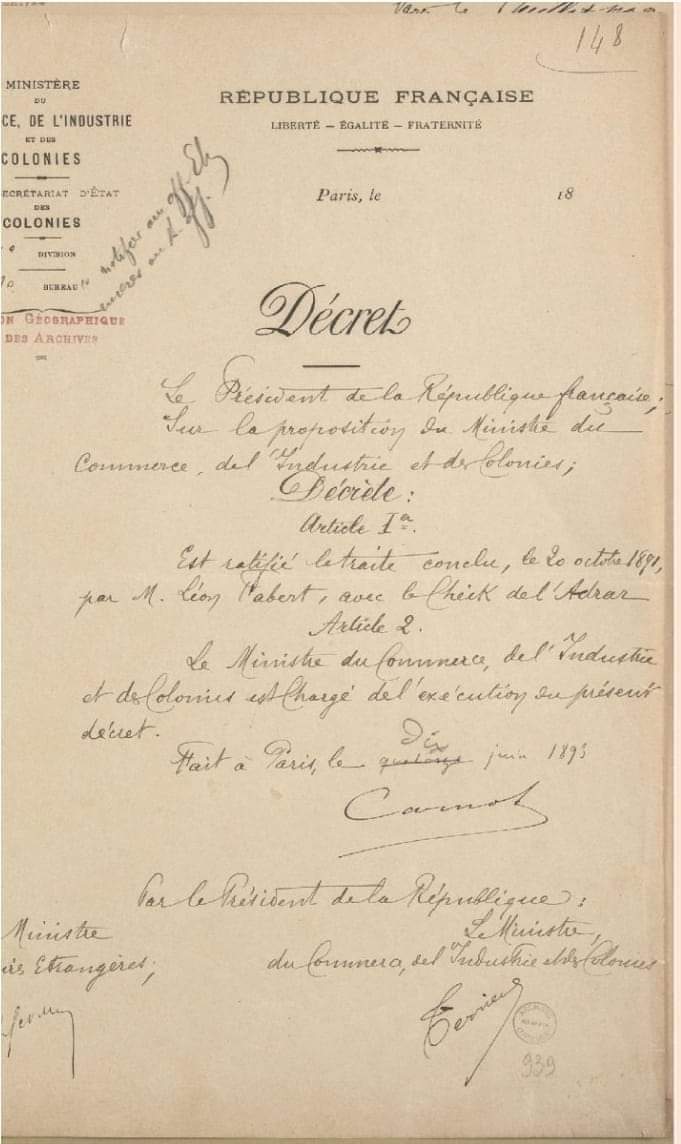 148
MINISTÈRE
DU
CE, DE L'INDUSTRIE
ET DES
COLONIES
ECRÉTARIAT D'ÉTAT
DES
COLONIES
DIVISION
BUREAU
ON GÉOGRAPHIQUE
DES ARCHIVES
RÉPUBLIQUE FRANÇAISE
LIBERTÉ — ÉGALITÉ — FRATERNITÉ
Paris, le 18
notifier au
Décret
Le Président de la République française;
Sur la proposition du Ministre du
Commerce, de l'Industrie et des Colonies;
Décrète:
Article 1er.
Est ratifié le traité conclu, le 20 octobre 1891,
par M. Léon Fabert, avec le Cheik de l'Adrar
Article 2.
Le Ministre du Commerce, de l'Industrie
et des Colonies est chargé de l'exécution du présent
décret.
Dix
Fait à Paris, le juin 1893
Carnot
Par le Président de la République:
Ministre
Le Ministre,
res Etrangères;
du Commerce, de l'Industrie et des Colonies
Terrier
939